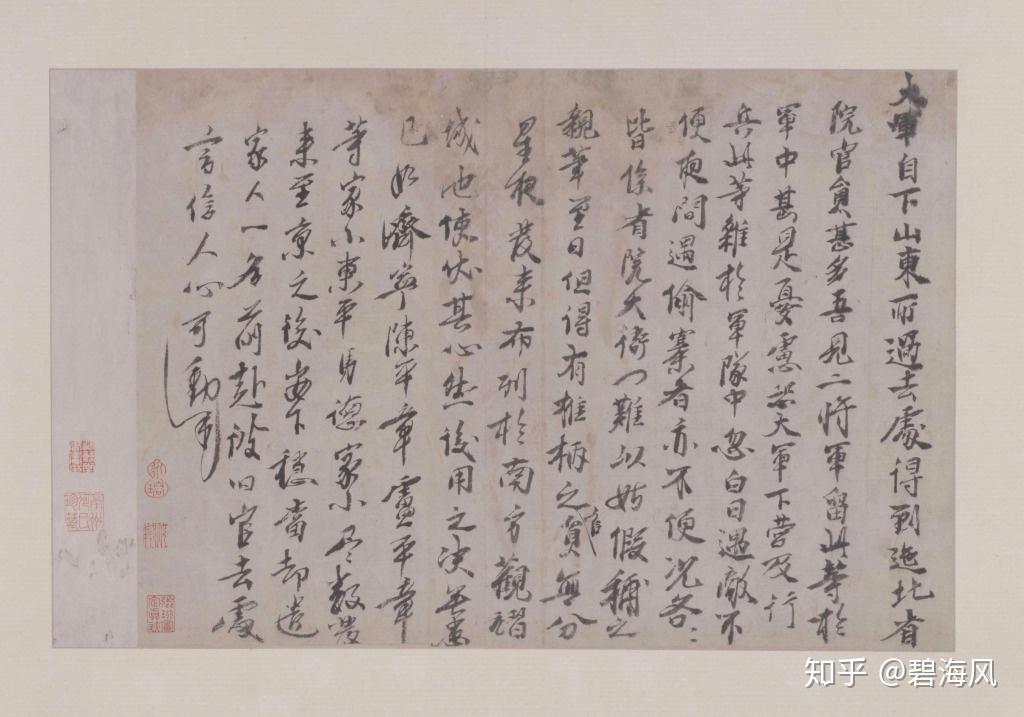 大軍自下山東所過去處得到迤北省
院官員甚多吾見二將軍留此等於
軍中甚是憂慮恐大軍下營及行
兵此等雜於軍隊中忽白日遇敵不
便夜間遇偷寨者亦不便況各〻
皆係省院大衙門難以姑假補之
親筆至日但得有權柄之官員無分
星夜發來布列於南方觀習
城池使伏其心然後用之決無患
已如濟寧陳平章盧平章
等家小東平馬德家小尽數發
來至京之後安下穩當却遣
家人一名前赴彼旧官去處
言信人心可動
知乎 @碧海风